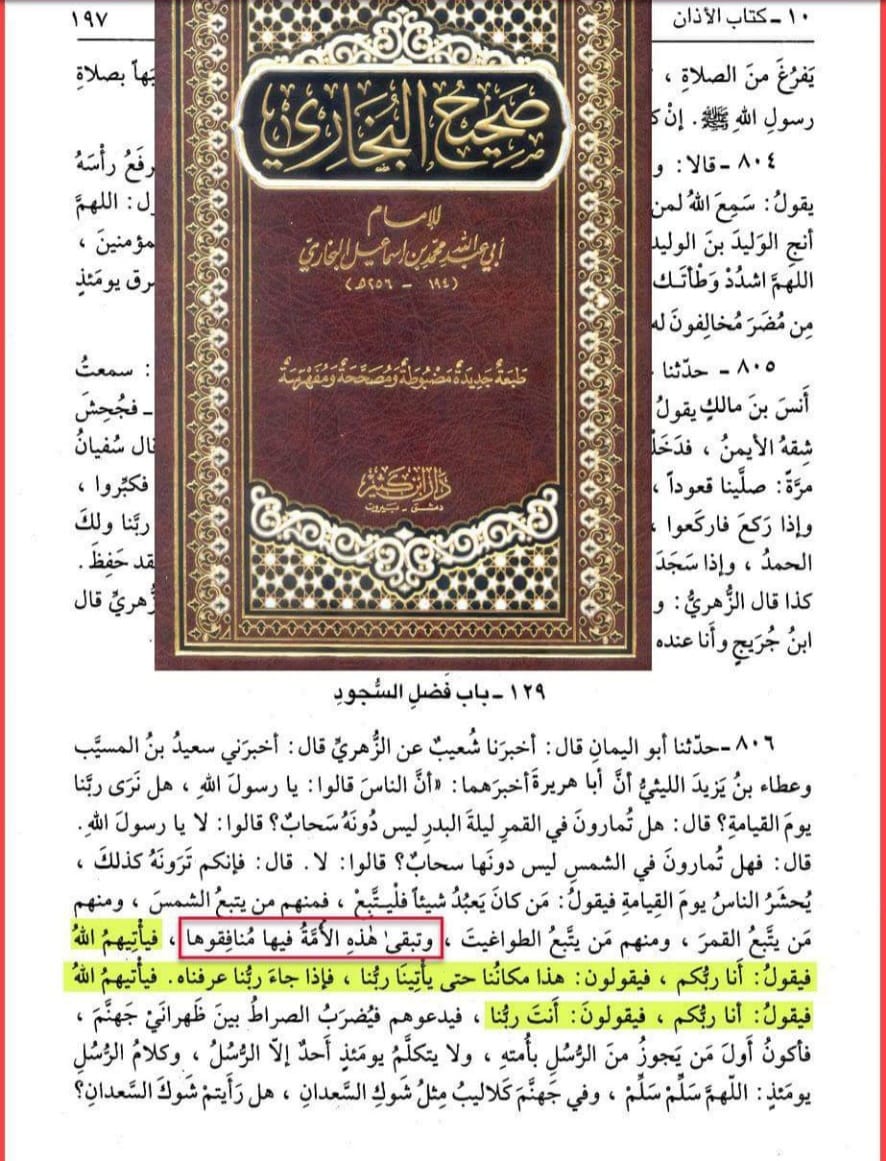 ١٠ ـ كتاب الأذان
١٩٧
يَفرُغَ منَ الصلاةِ ،
يَهاً بصلاةِ
رسولِ اللهِ ﷺ. إنْ
٨٠٤ ـ قالا: و
رفَعُ رأْسَهُ
يقولُ: سَمِعَ اللهُ لمن
ل: اللهمَّ
أنجِ الوَليدَ بنَ الوليد
مؤمنينَ ،
اللهمَّ اشدُدْ وَطْأتَك
رق يومَئذٍ
مِن مُضَرَ مُخالِفونَ له
٨٠٥ ـ حدّثنا
: سمعتُ
أَنسَ بنَ مالكٍ يقولُ
ـ فجُحِشَ
شِقهُ الأيمنُ ، فدَخَلْ
قال سُفيانُ
مرَّةً: صلَّينا قعوداً ،
فكبِّروا ،
وإذا رَكعَ فاركَعوا ،
ربَّنا ولكَ
الحمدُ ، وإذا سَجَدَ
قد حَفِظَ.
كذا قال الزُّهريُّ: و
زُّهريِّ قال
ابنُ جُرَيجٍ وأَنا عنده
صَحِيحُ البُخَارِي
للإمام
أبي عبد الله محمد بن اسماعيل البخاري
(١٩٤ - ٢٥٦هـ)
طَبعَةٌ جَديدَةٌ مَضبُوطَةٌ وَمُصَحَّحَةٌ وَمُفَهرَسَةٌ
دار ابن كثير
دمشق ـ بيروت
١٢٩ ـ باب فَضلِ السُّجودِ
٨٠٦ ـ حدّثنا أبو اليمانِ قال: أخبرَنا شُعيبٌ عن الزُّهريِّ قال: أخبرَني سعيدُ بنُ المسيَّب
وعطاء بنُ يَزيدَ الليثيُّ أنَّ أبا هريرةَ أخبرَهما: «أنَّ الناسَ قالوا: يا رسولَ اللهِ ، هل نَرَى ربَّنا
يومَ القيامةِ؟ قال: هل تُمارونَ في القمرِ ليلةَ البدرِ ليس دُونَهُ سَحابٌ؟ قالوا: لا يا رسولَ اللهِ.
قال: فهل تُمارونَ في الشمسِ ليس دونَها سحابٌ؟ قالوا: لا. قال: فإنكم تَرَونَهُ كذلكَ ،
يُحشَرُ الناسُ يومَ القِيامةِ فيقولُ: مَن كانَ يَعبُدُ شيئاً فلْيتَّبِعْ ، فمنهم من يتبعُ الشمسَ ، ومنهم
مَن يتَّبعُ القمرَ ، ومنهم مَن يتَّبعُ الطواغيتَ ، وتبقىٰ هٰذهِ الأمَّةُ فيها مُنافِقوها ، فيأْتِيهمُ اللهُ
فيقولُ: أَنا ربُّكم ، فيقولون: هذا مكانُنا حتى يأْتِيَنا ربُّنا ، فإذا جاءَ ربُّنا عرفناه. فيأتيهمُ اللهُ
فيقولُ: أنا ربُّكم ، فيقولونَ: أَنتَ ربُّنا ، فيدعوهم فيُضرَبُ الصراطُ بينَ ظَهرانَيْ جهنَّمَ ،
فأكونُ أَولَ مَن يَجوزُ منَ الرُّسلِ بأُمتهِ ، ولا يتكلَّمُ يومَئذٍ أَحدٌ إلّا الرُّسُلُ ، وكلامُ الرُّسلِ
يومَئذٍ: اللّهمَّ سَلِّمْ سَلِّمْ ، وفي جَهنَّمَ كَلاليبُ مِثلُ شَوكِ السَّعدانِ ، هل رَأَيتمْ شَوكَ السَّعدانِ؟